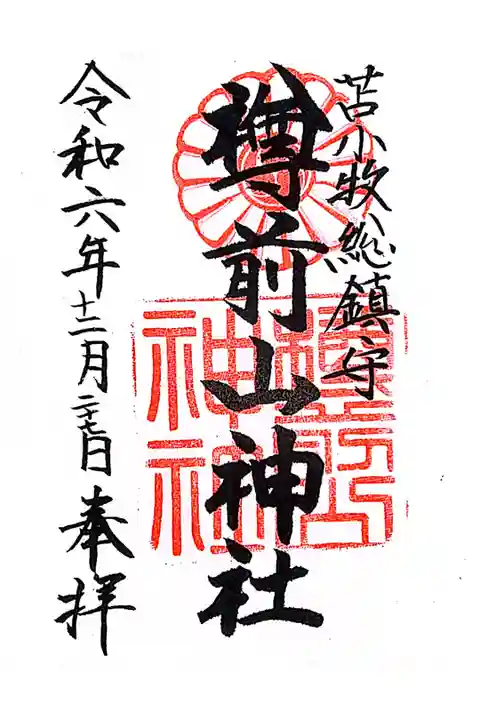 苫小牧総鎮守
樽前山神社
令和六年十二月二十七日
奉拝
樽前山
神社